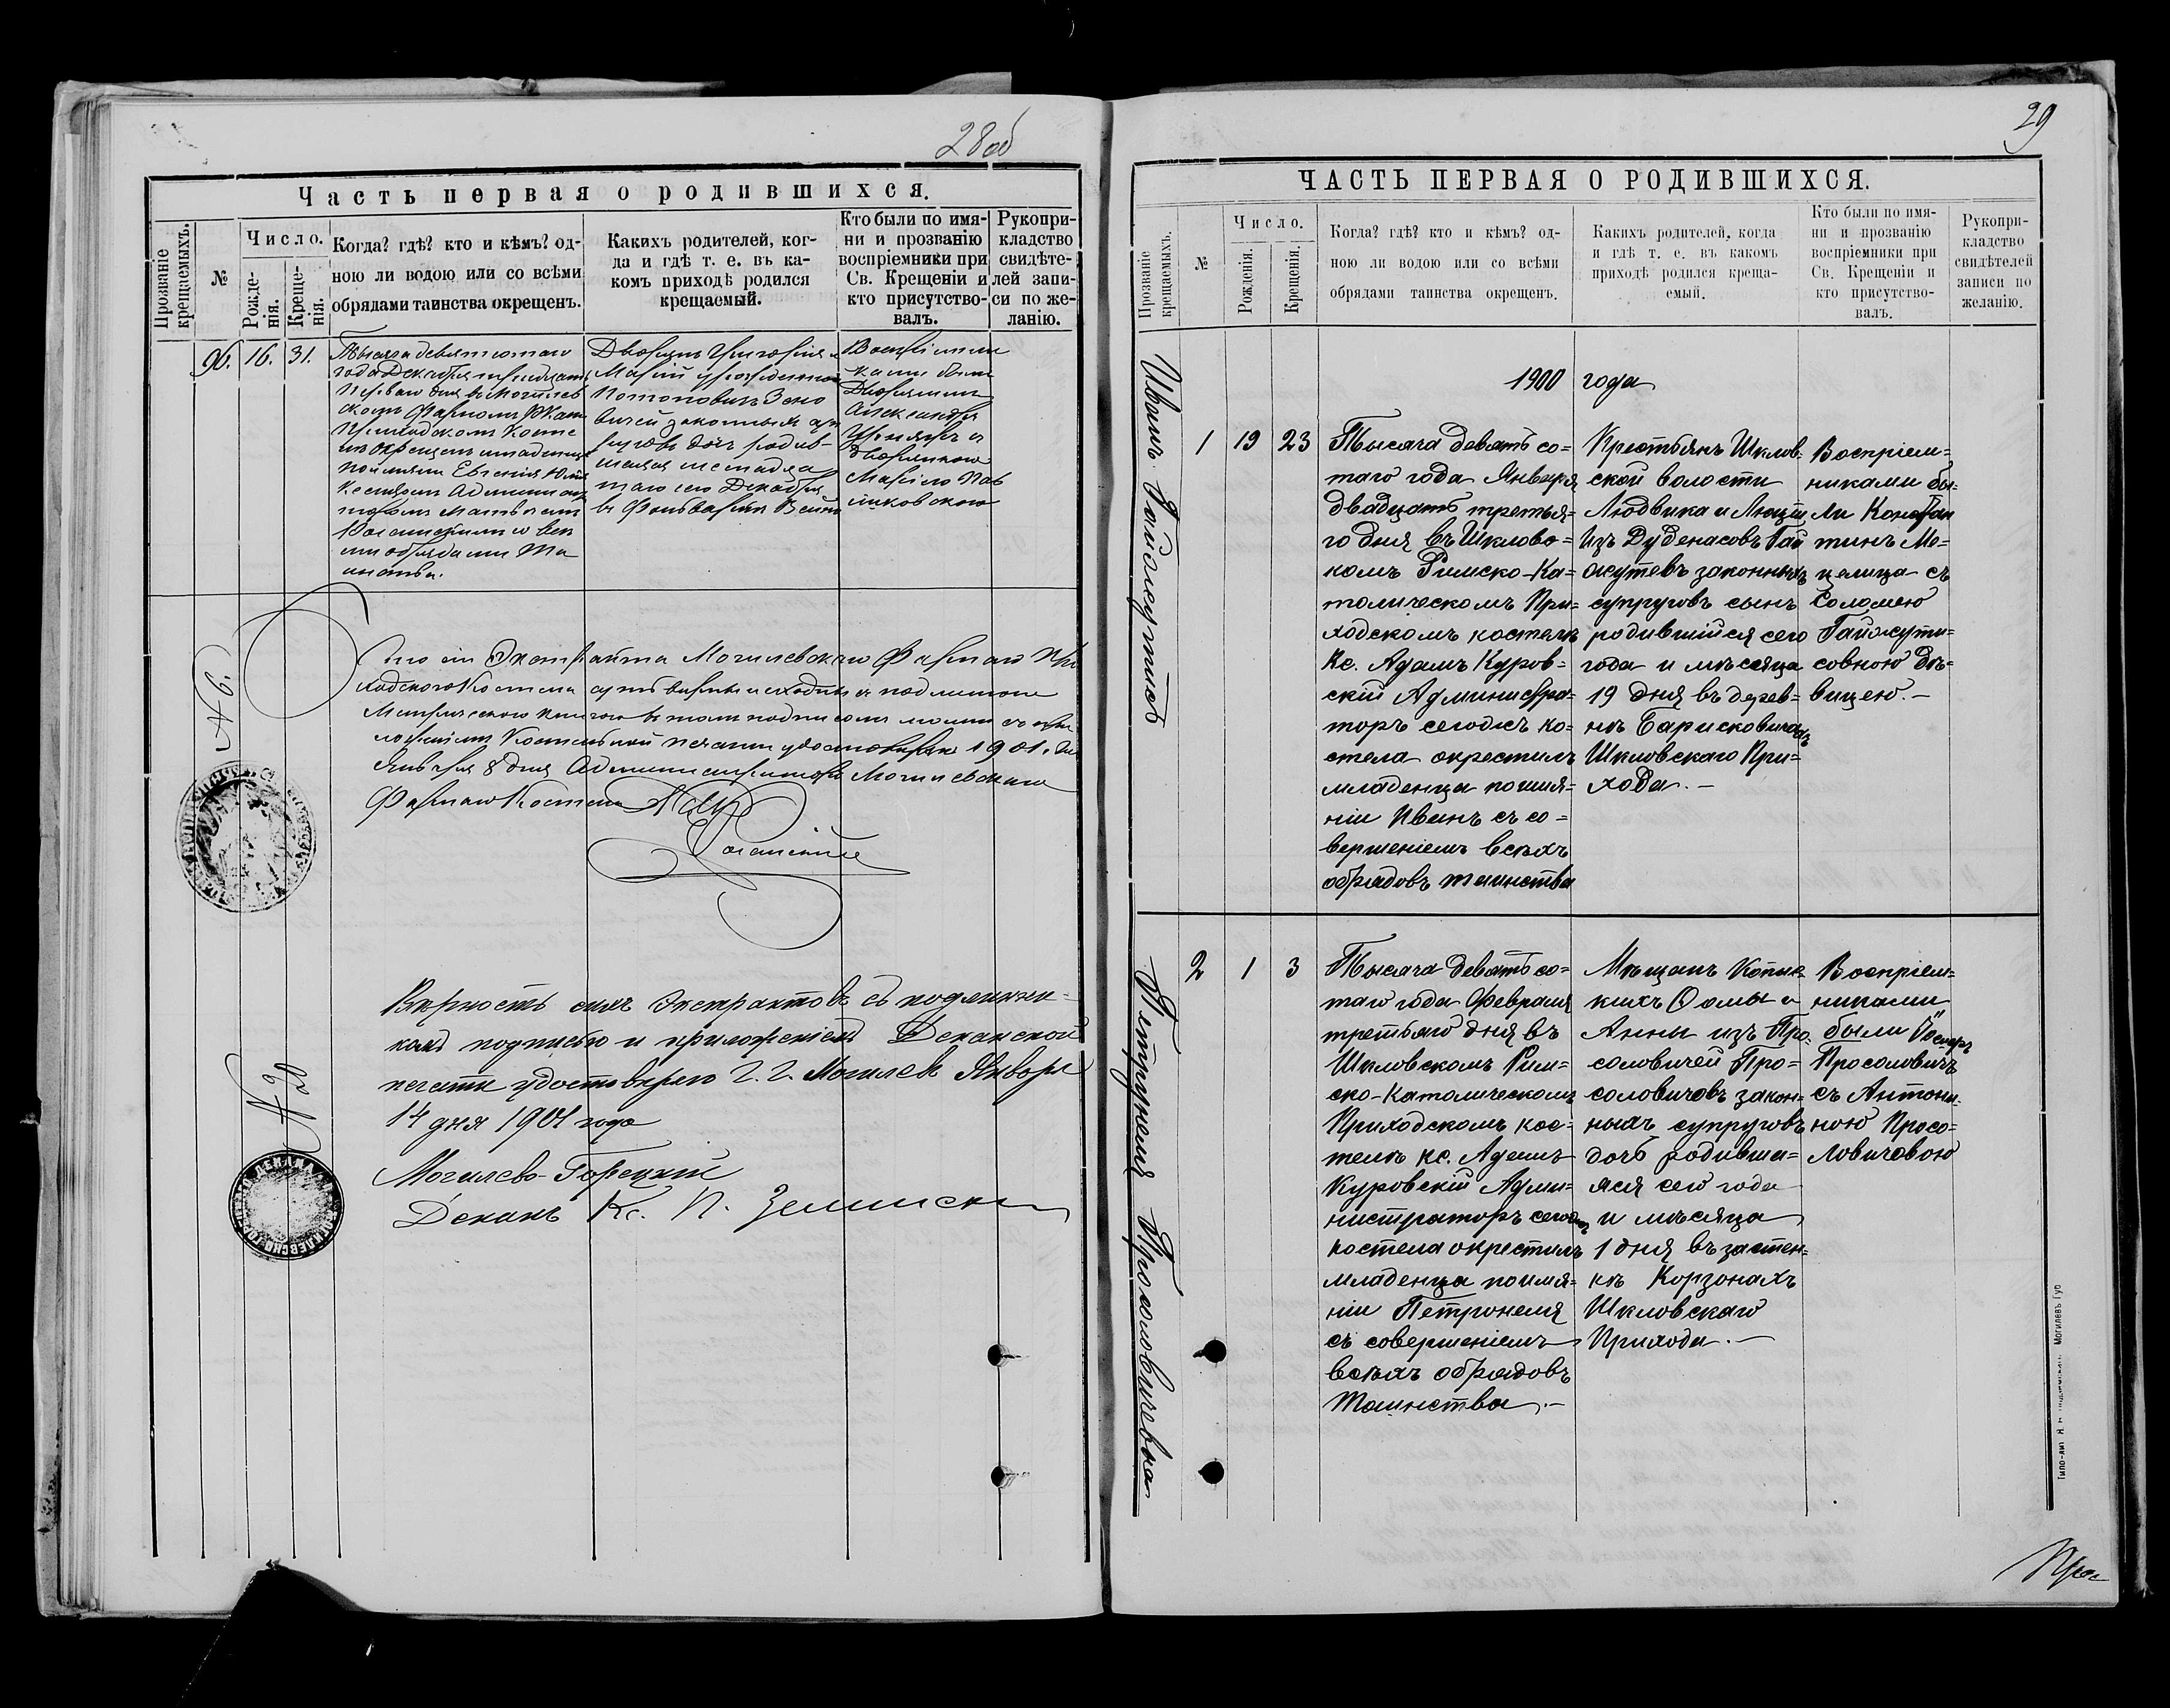 28 об
Часть первая о родившихся.
Прозваніе крещаемыхъ.
№
Число.
Рожде-
нія.
Креще-
нія.
Когда? гдѣ? кто и кѣмъ? од-
ною ли водою или со всѣми
обрядами таинства окрещенъ.
Какихъ родителей, ког-
да и гдѣ т. е. въ ка-
комъ приходѣ родился
крещаемый.
Кто были по имя-
ни и прозванію
воспріемники при
Св. Крещеніи и
кто присутство-
валъ.
Рукопри-
кладство
свидѣте-
лей запи-
си по же-
ланію.
96. 16. 31.
Тысяча девятисотаго
года Декабря тридцать
перваго дня въ Могилев
скомъ Фарномъ РКат
Приходскомъ Косте
лѣ окрещенъ младенецъ
по имяни Евгенія
Ксендзомъ Админист
раторомъ
со всѣ
ми обрядами Та
инства.
Дворянъ Григорія и
Маріи урожденной
Потоповичъ Зено
вичей законныхъ суп
руговъ дочь родив
шаяся шестнадца
таго сего Декабря
въ Фольваркѣ
Воспріемни
ками были
Дворянинъ
Александръ
и
дворянкою
Маріею Пав
ликовскою
№ 6.
Что сіи Экстракты Могилевскаго Фарнаго При
ходскаго Костела суть вѣрны и сходны съ подлинною
Метрическою книгою въ томъ подписомъ моимъ съ при
ложеніемъ Костельной печати удостовѣряю 1901. года
Января 8 дня Администраторъ Могилевскаго
Фарнаго Костела
№ 20
Вѣрность сихъ Экстрактовъ съ подлинни-
комъ подписью и приложеніемъ Деканской
печати удостовѣряю Г. Г. Могилевъ Января
14 дня 1901 года
Могилево-Горецкій
Деканъ Кс. П. Землиски
29
ЧАСТЬ ПЕРВАЯ О РОДИВШИХСЯ.
Прозваніе
крещаемыхъ.
№
Число.
Рожденія.
Крещенія.
Когда? гдѣ? кто и кѣмъ? од-
ною ли водою или со всѣми
обрядами таинства окрещенъ.
Какихъ родителей, когда
и гдѣ т. е. въ какомъ
приходѣ родился креща-
емый.
Кто были по имя-
ни и прозванію
воспріемники при
Св. Крещеніи и
кто присутство-
валъ.
Рукопри-
кладство
свидѣтелей
записи по
желанію.
1900 года
Иванъ Гайжутисъ
1 19 23
Тысяча девятьсо=
таго года Января
двадцать третья=
го дня въ Шкловс=
комъ Римско-Ка=
толическомъ При=
ходскомъ костелѣ
Кс. Адамъ Куров=
скій Администра=
торъ сегожъ ко=
стела окрестилъ
младенца по имя=
ніи Иванъ съ со=
вершеніемъ всѣхъ
обрядовъ таинства
Крестьянъ Шклов=
ской волости
Людвика и Люціи
изъ Дуденасовъ Гай
жутевъ законныхъ
супруговъ сынъ
родившійся сего
года и мѣсяца
19 дня въ дерев=
нѣ Барисковичахъ
Шкловскаго При=
хода.—
Воспріем=
никами бы=
ли Констан
тинъ Ме=
целица съ
Соломею
Гайжути=
совною дѣ=
вицею.—
Петрунеля Просоловичевна
2 1 3
Тысяча девятьсо=
таго года Февраля
третьяго дня въ
Шкловскомъ Рим=
ско-Католическомъ
Приходскомъ кос=
телѣ кс. Адамъ
Куровскій Адми=
нистраторъ сегожъ
костела окрестилъ
младенца по имя=
ніи Петронеля
съ совершеніемъ
всѣхъ обрядовъ
Таинства.—
Мѣщанъ Копыс
кихъ Ѳомы и
Анны изъ Про
соловичей Про=
соловичовъ закон=
ныхъ супруговъ
дочь родивша=
яся сего года
и мѣсяца
1 дня въ застен=
кѣ Корзонахъ
Шкловскаго
Прихода.—
Воспріем=
никами
были Іосифъ
Просоловичъ
съ Антони=
ною Просо=
ловичовою
Прос